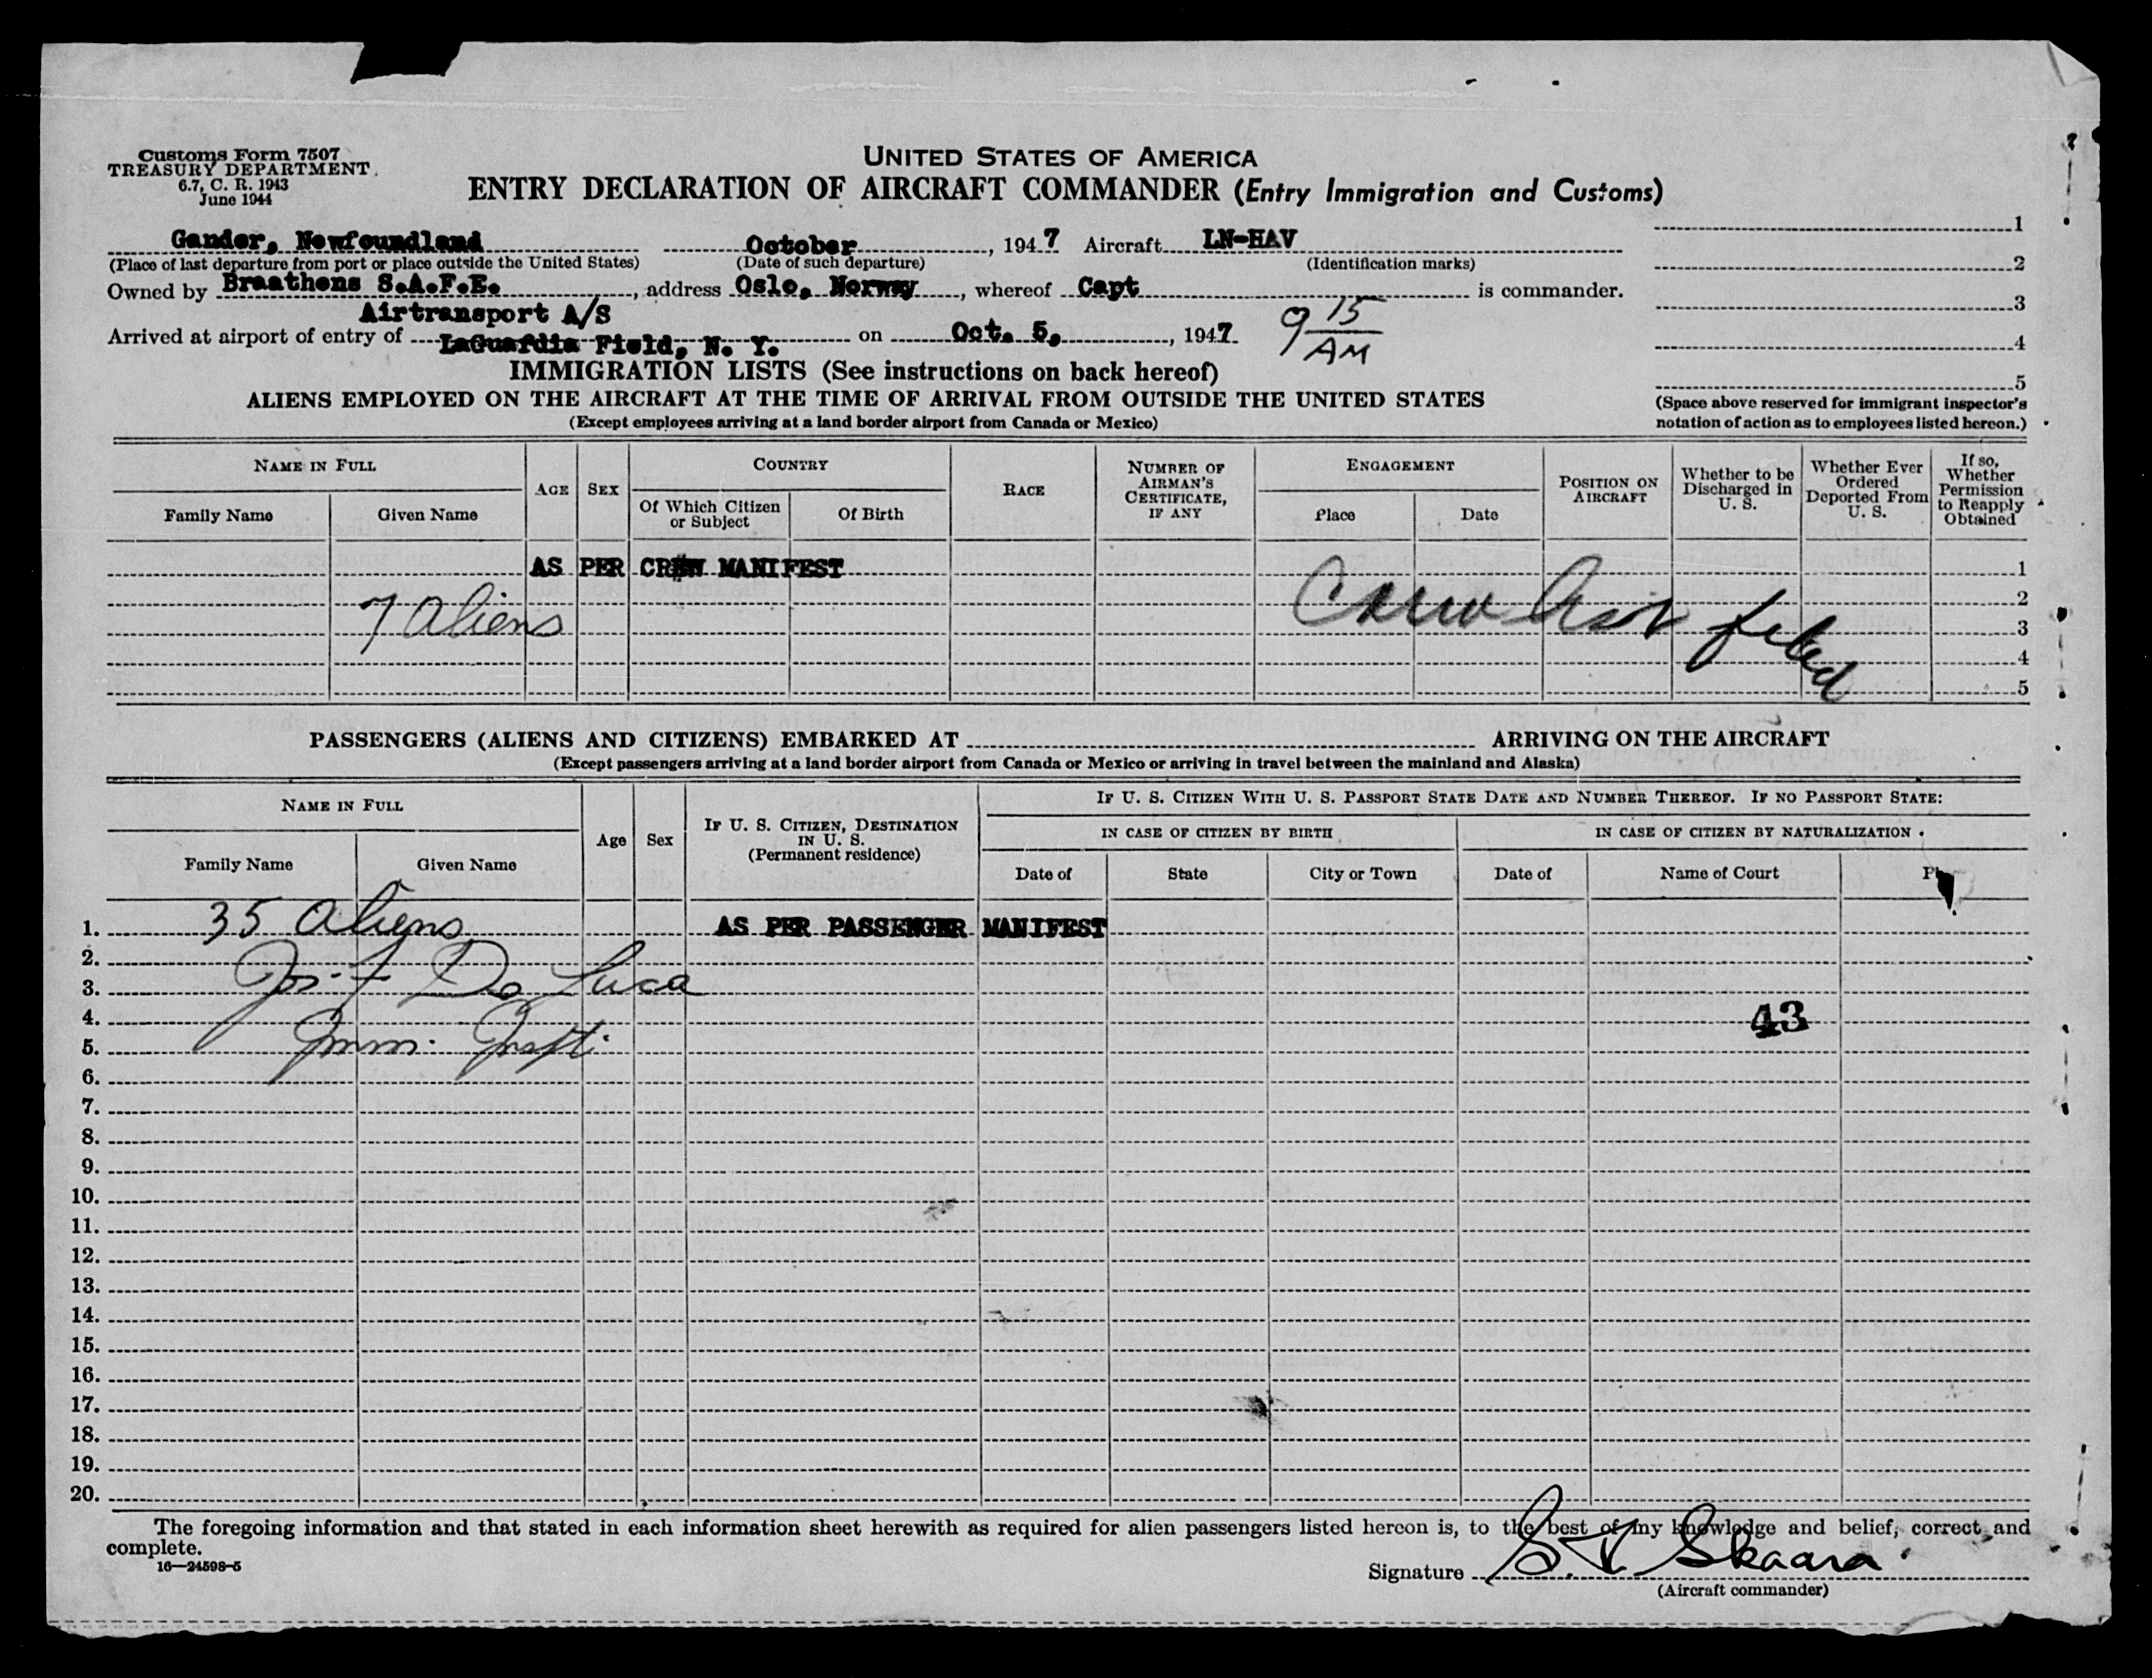 Customs Form 7507
TREASURY DEPARTMENT
6.7, C. R. 1943
June 1944
UNITED STATES OF AMERICA
ENTRY DECLARATION OF AIRCRAFT COMMANDER (Entry Immigration and Customs)
Gander, Newfoundland October, 1947 Aircraft LN-HAV
(Place of last departure from port or place outside the United States) (Date of such departure) (Identification marks)
Owned by Braathens S.A.F.E., address Oslo, Norway, whereof Capt is commander.
Airtransport A/S
Arrived at airport of entry of LaGuardia Field, N. Y. on Oct. 5, 1947 9 15 AM
1
2
3
4
5
(Space above reserved for immigrant inspector's
notation of action as to employees listed hereon.)
IMMIGRATION LISTS (See instructions on back hereof)
ALIENS EMPLOYED ON THE AIRCRAFT AT THE TIME OF ARRIVAL FROM OUTSIDE THE UNITED STATES
(Except employees arriving at a land border airport from Canada or Mexico)
NAME IN FULL
Family Name Given Name
AGE
SEX
COUNTRY
Of Which Citizen or Subject
Of Birth
RACE
NUMBER OF AIRMAN'S CERTIFICATE, IF ANY
ENGAGEMENT
Place Date
POSITION ON AIRCRAFT
Whether to be Discharged in U. S.
Whether Ever Ordered Deported From U. S.
If so, Whether Permission to Reapply Obtained
AS PER CREW MANIFEST 1
2
7 Aliens filed 3
4
5
PASSENGERS (ALIENS AND CITIZENS) EMBARKED AT ARRIVING ON THE AIRCRAFT
(Except passengers arriving at a land border airport from Canada or Mexico or arriving in travel between the mainland and Alaska)
NAME IN FULL
Family Name Given Name
Age
Sex
IF U. S. CITIZEN, DESTINATION IN U. S.
(Permanent residence)
IF U. S. CITIZEN WITH U. S. PASSPORT STATE DATE AND NUMBER THEREOF. IF NO PASSPORT STATE:
IN CASE OF CITIZEN BY BIRTH IN CASE OF CITIZEN BY NATURALIZATION
Date of State City or Town Date of Name of Court
1. 35 Aliens AS PER PASSENGER MANIFEST
2.
3. Jos. F De Luca
4. 43
5. Imm. Inspt.
6.
7.
8.
9.
10.
11.
12.
13.
14.
15.
16.
17.
18.
19.
20.
The foregoing information and that stated in each information sheet herewith as required for alien passengers listed hereon is, to the best of my knowledge and belief, correct and
complete.
16—24598-5
Signature S. Skaara
(Aircraft commander)